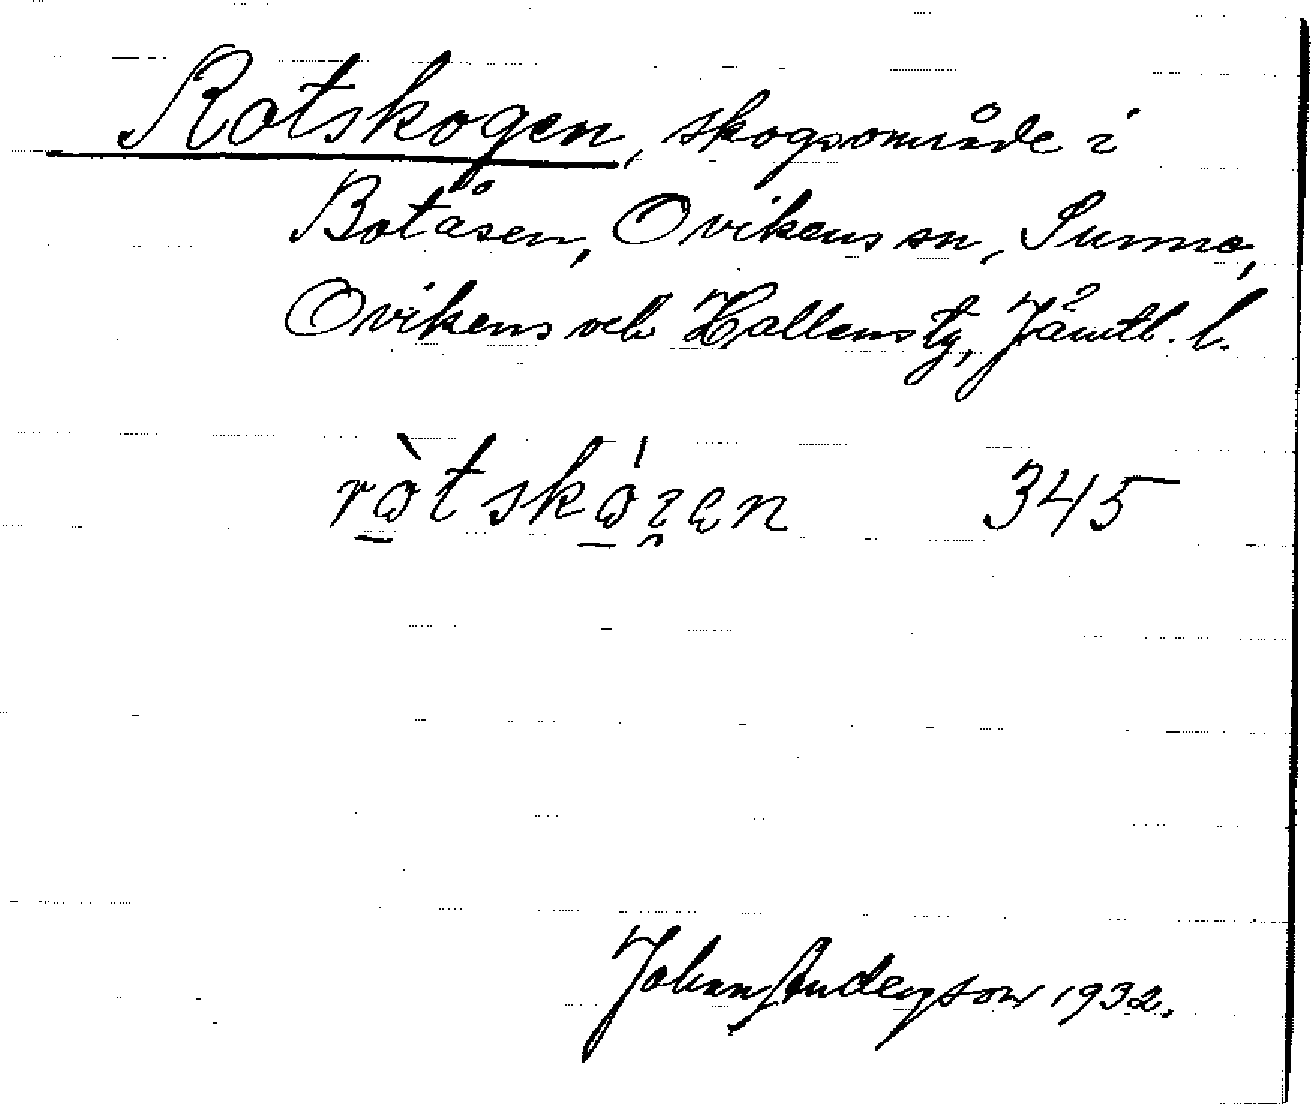 Rotskogen, skogsområde i
Botåsen, Ovikens sn, Sunne,
Ovikens och Hallens tg, Jämtl. l.
ròtskógen 345
Johan Anderson 1932.